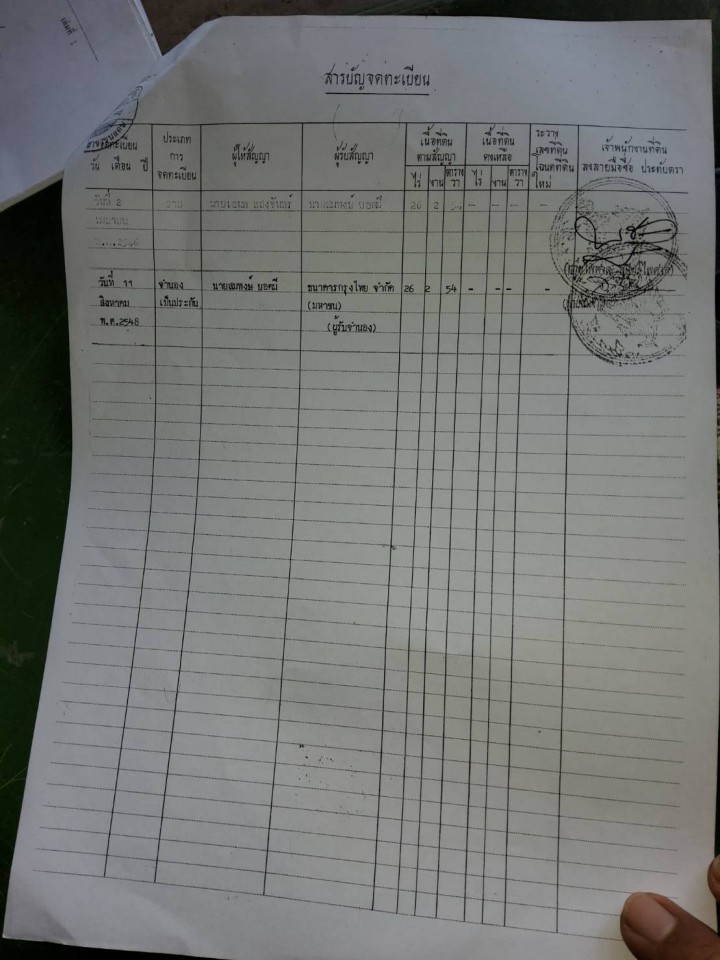 เล่มที่ 1
สารบัญจดทะเบียน
จดทะเบียน
วัน เดือน ปี
ประเภท
การ
จดทะเบียน
ผู้ให้สัญญา
ผู้รับสัญญา
เนื้อที่ดิน
ตามสัญญา
ไร่ งาน ตาราง
วา
เนื้อที่ดิน
คงเหลือ
ไร่ งาน ตาราง
วา
ระวาง
เลขที่ดิน
โฉนดที่ดิน
ใหม่
เจ้าพนักงานที่ดิน
ลงลายมือชื่อ ประทับตรา
วันที่ 2 ขาย 26 2 54 - - - -
เมษายน
วันที่ 11 จำนอง ธนาคารกรุงไทย จำกัด 26 2 54 - - - -
สิงหาคม เป็นประกัน (มหาชน)
พ.ศ.2548 (ผู้รับจำนอง)